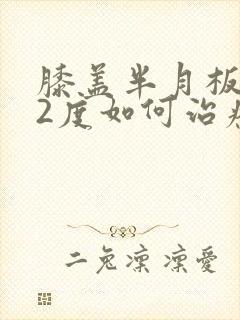 膝盖半月板
2度如何治疗
二兔凛凛愛